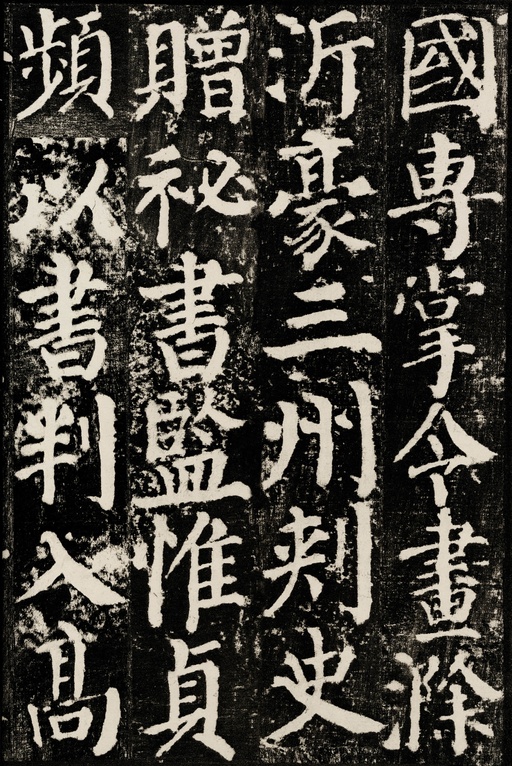 國專掌令畫滁
沂豪三州刺史
贈祕書監惟貞
頻以書判入髙